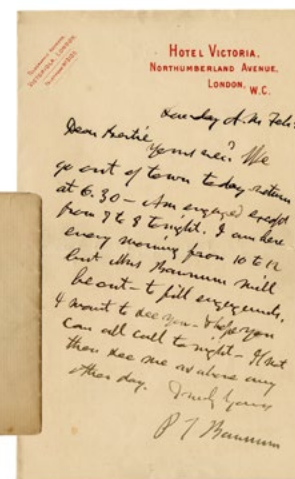 HOTEL VICTORIA,
NORTHUMBERLAND AVENUE,
LONDON, W.C.
VICTORIOLA, LONDON.
Sunday A.M. Feb.
Dear Bertie
Yours recd. We
go out of town today return
at 6.30 – Am engaged
from 7 to 8 tonight. I am here
every morning from 10 to 12
but Mrs Barnum will
be out – to fill engagements.
I want to see you – & hope you
can all call tonight – If not
then see me as above any
other day. Truly Yours
P T Barnum